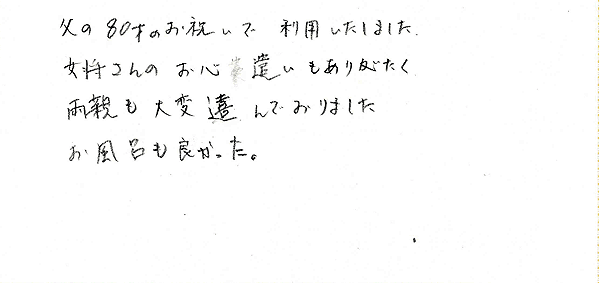 父の80才のお祝いで 利用いたしました.
女将さんの お心遣いもありがたく
両親も 大変 喜んでおりました
お風呂も良かった。